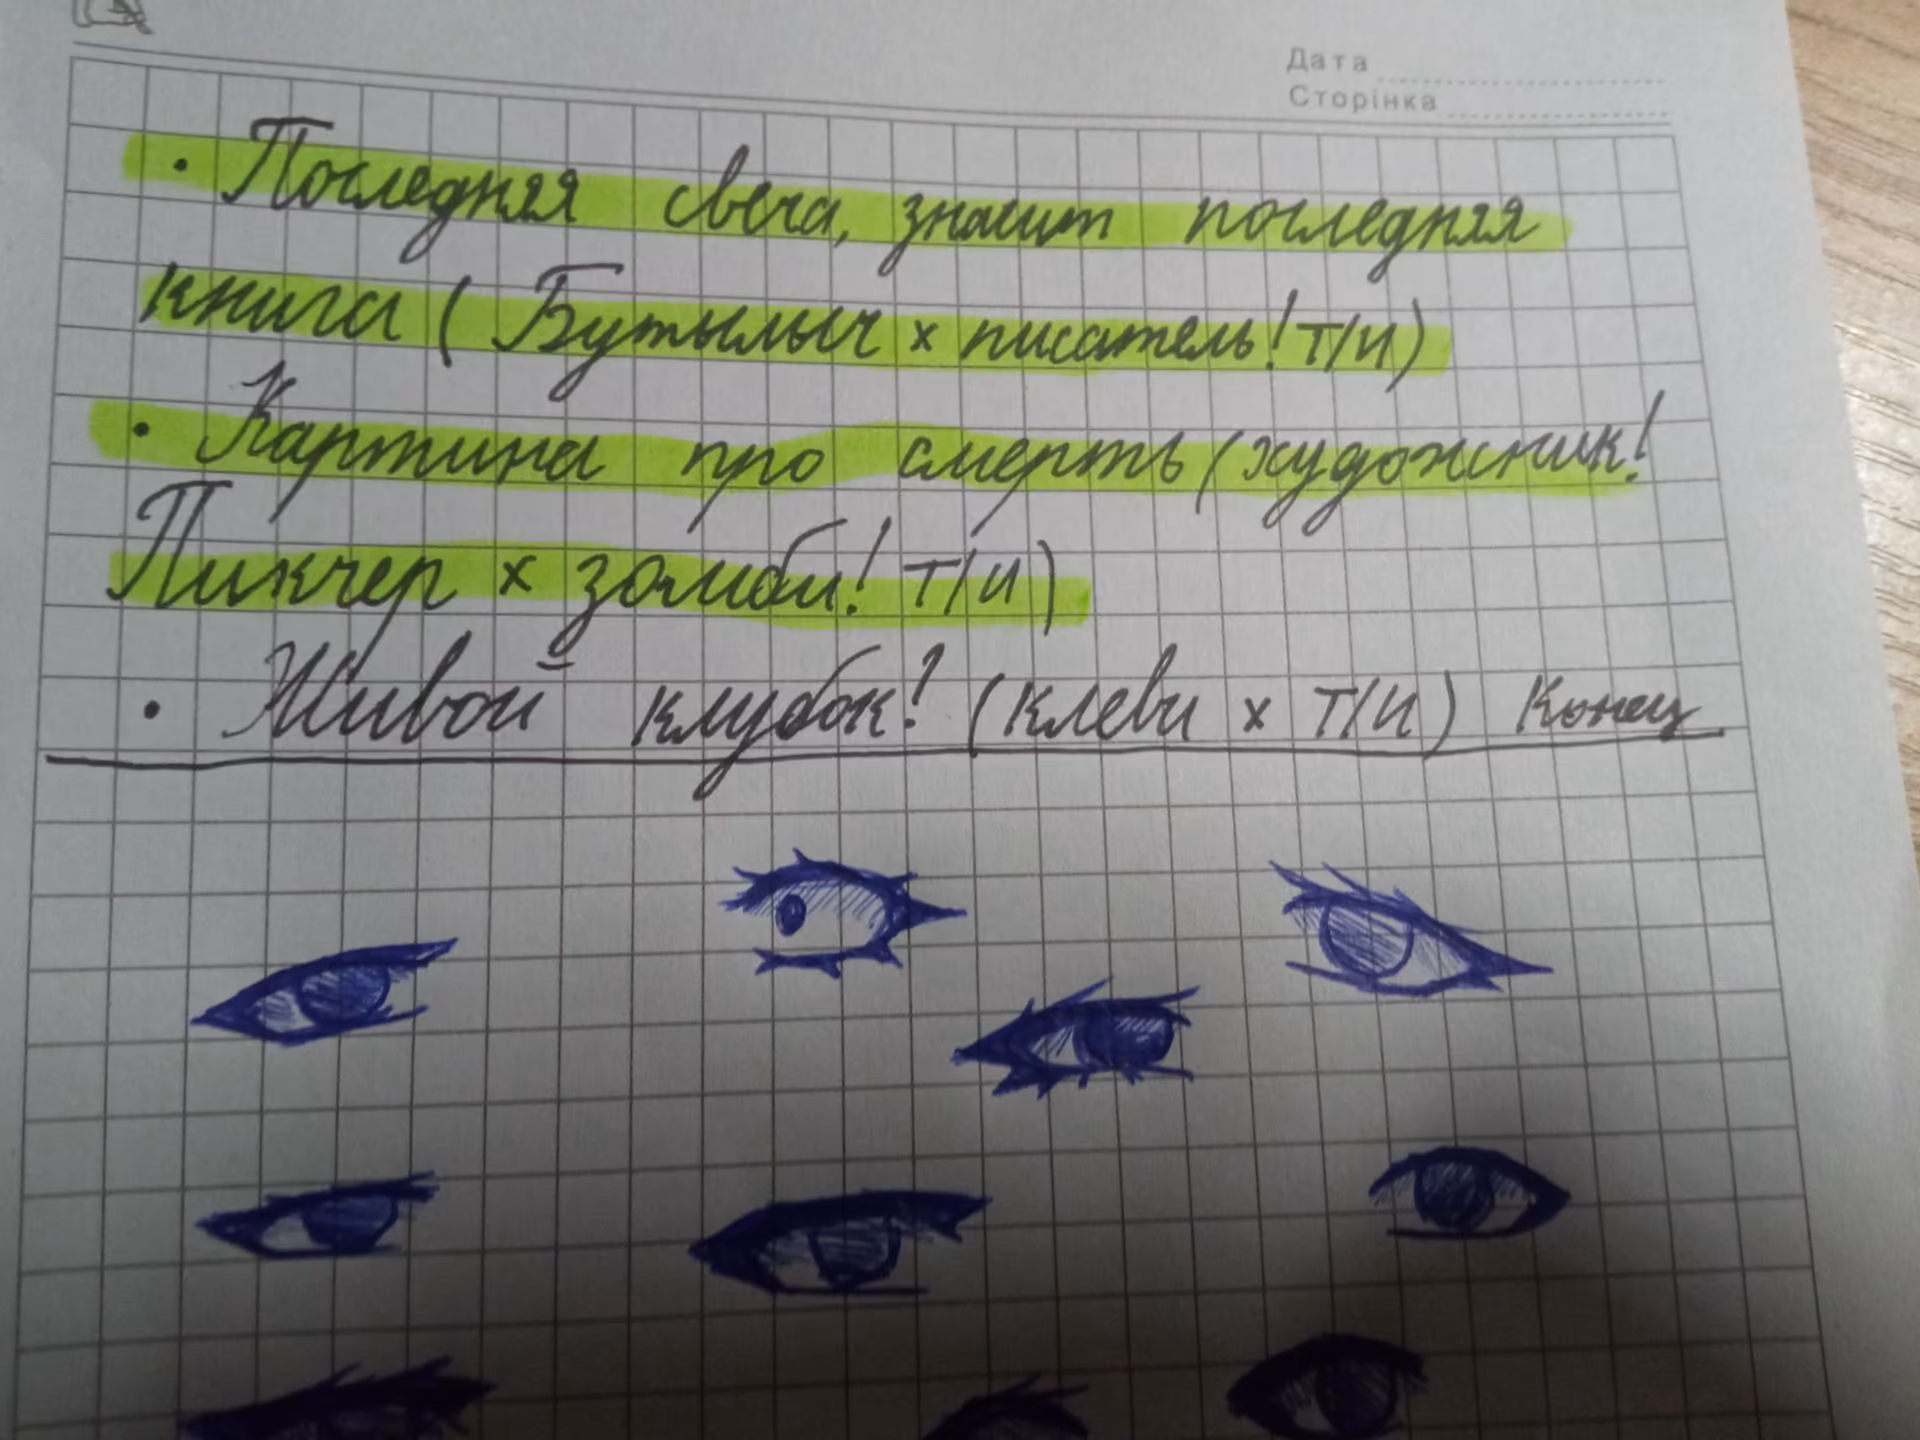 Дата
Сторінка
· Последняя свеча, значит последняя
книга (Бутылыч х писатель! Т/И)
· Картина про смерть (художник!
Пикчер х зомби! Т/И)
· Живой клубок! (Клеви х Т/И) Конец